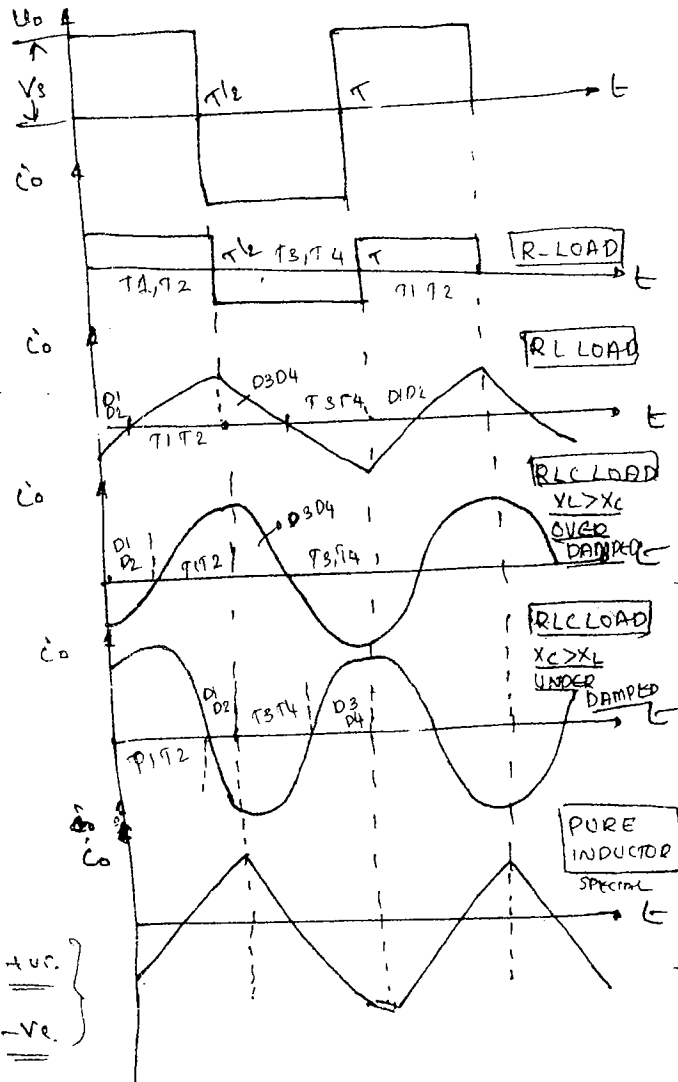 υo
Vs
T/2
T
t
io
T/2
T3,T4
T
R-LOAD
T1,T2
T1T2
t
io
RL LOAD
D1
D2
D3D4
T3T4
D1D2
T1T2
t
io
RLC LOAD
XL>XC
OVER
DAMPED
t
D1
D2
T1T2
D3D4
T3,T4
io
RLC LOAD
XC>XL
UNDER
DAMPED
t
D1
D2
T3T4
D3
D4
T1T2
io
PURE
INDUCTOR
SPECIAL
t
+ve.
-Ve.